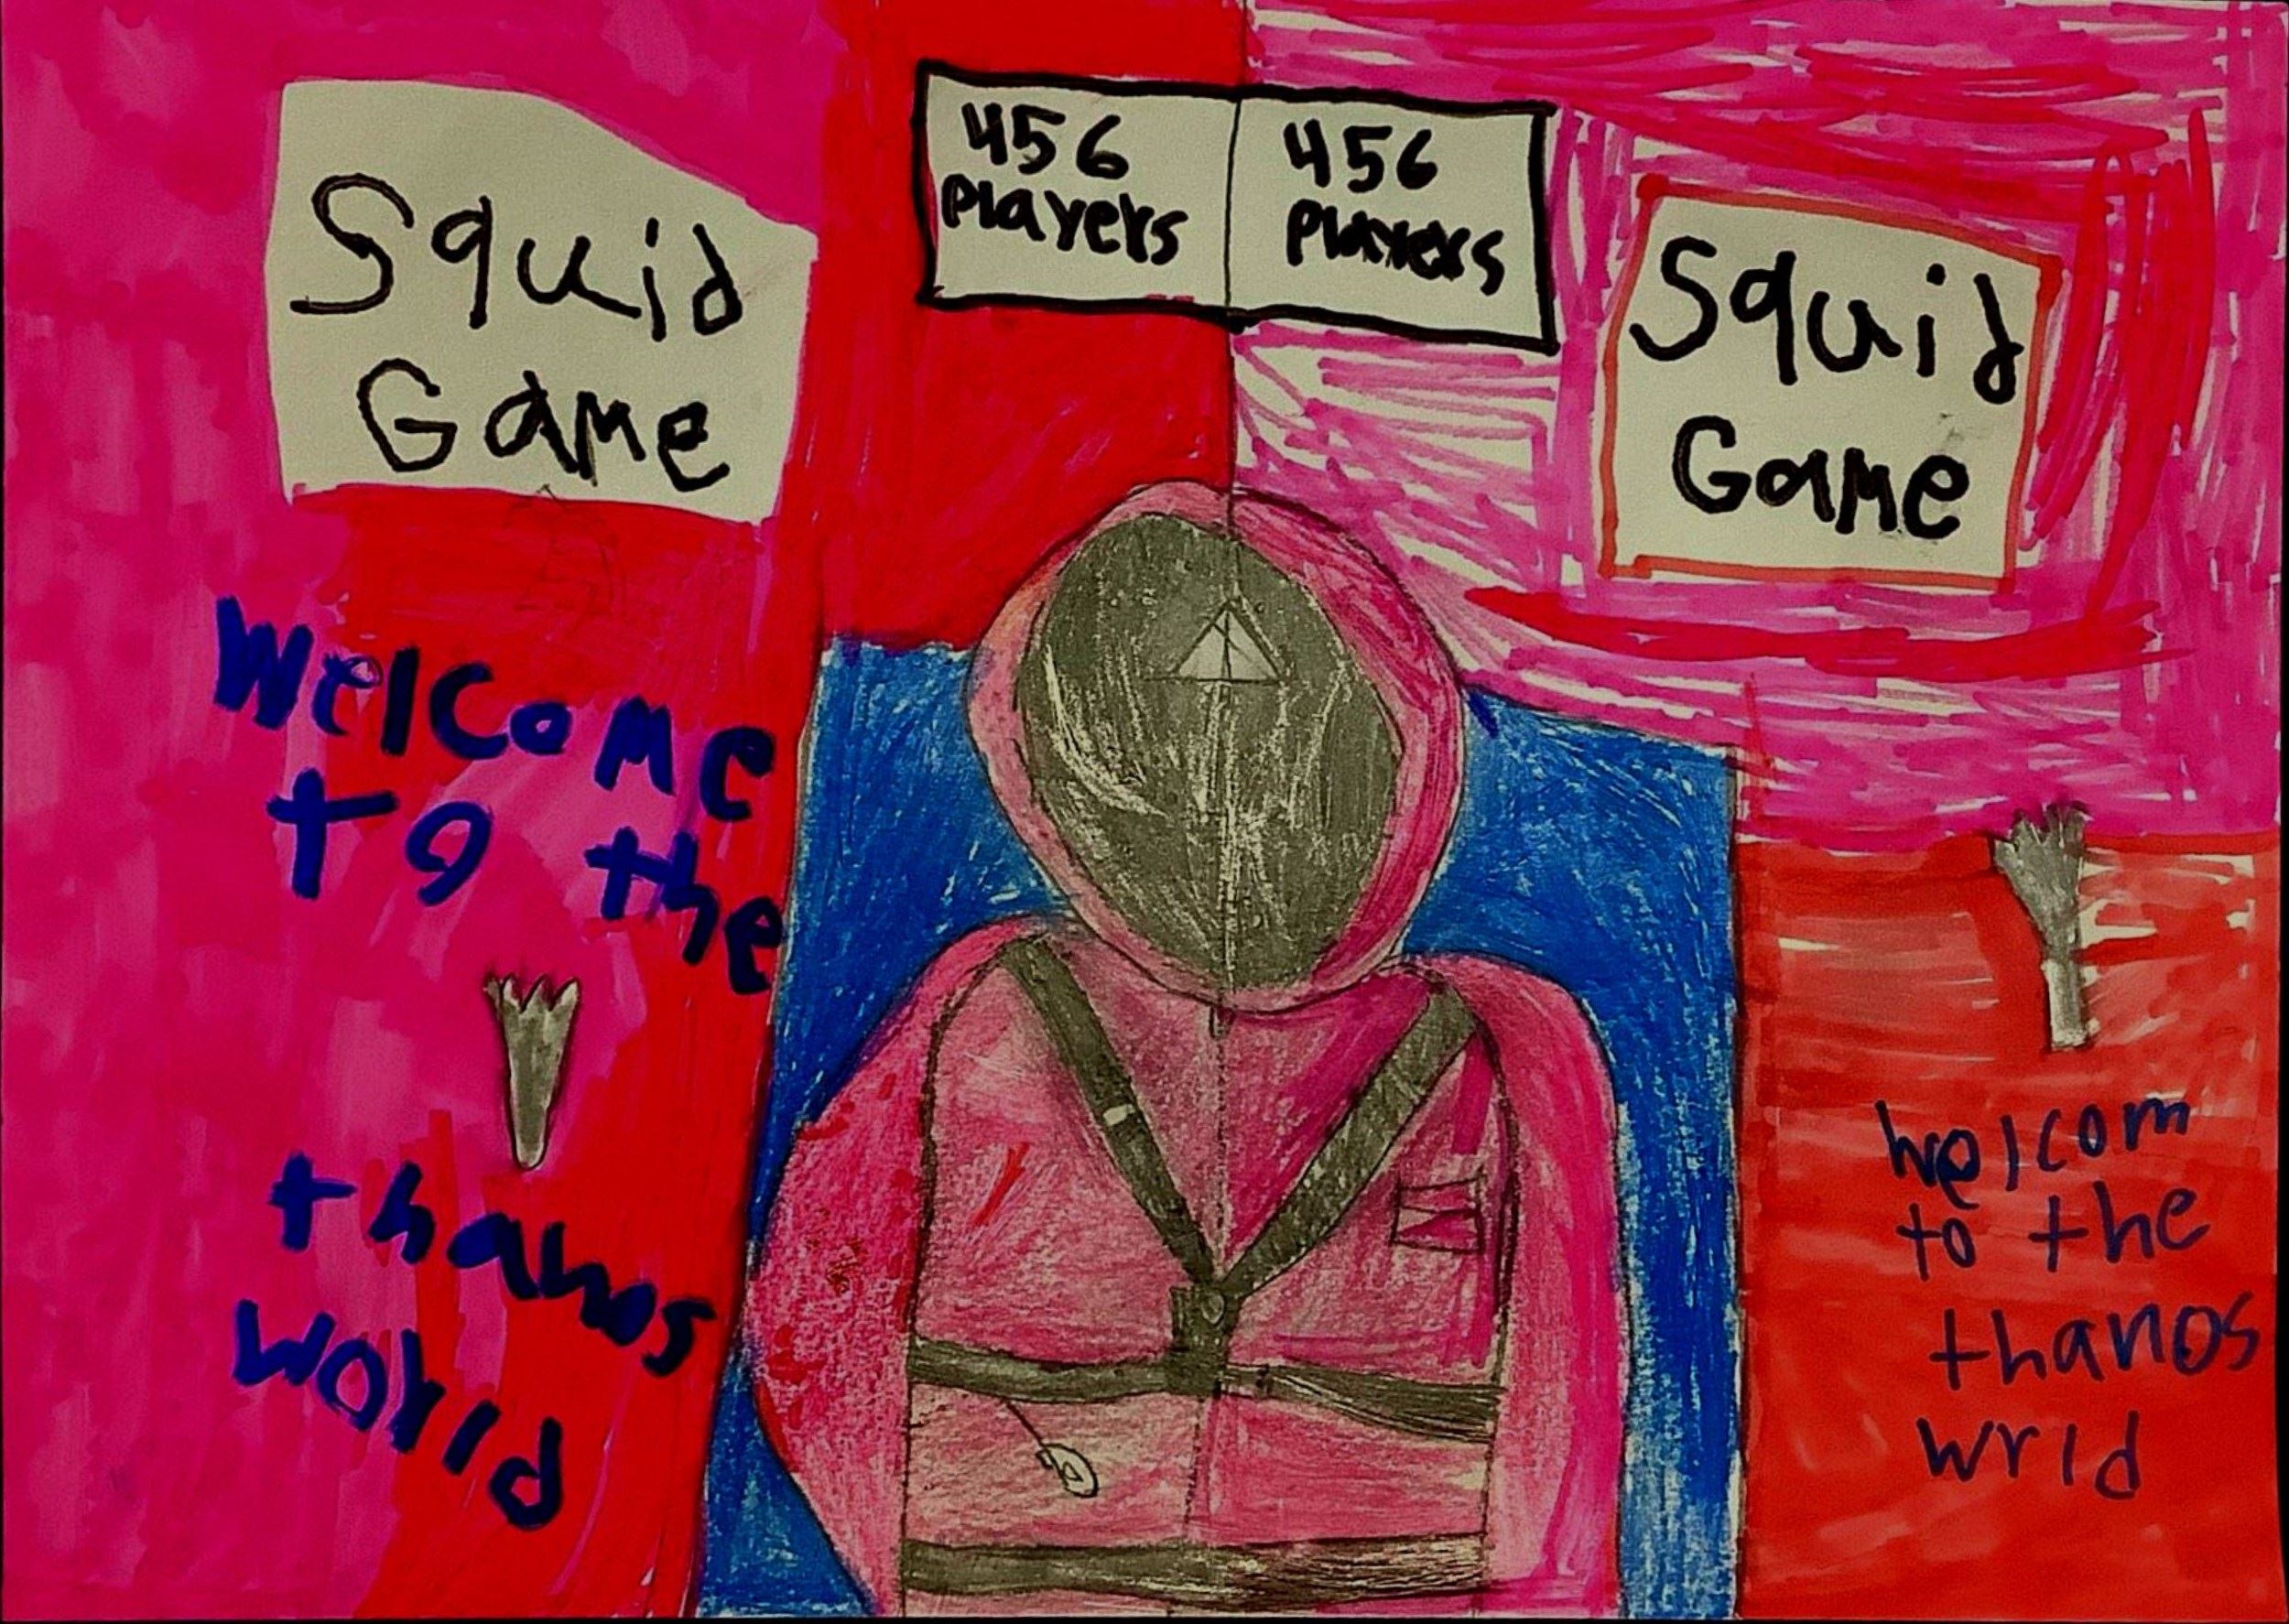 Squid
Game
456
players
456
players
Squid
Game
Welcome
to the
thanos
World
welcom
to the
thanos
wrld